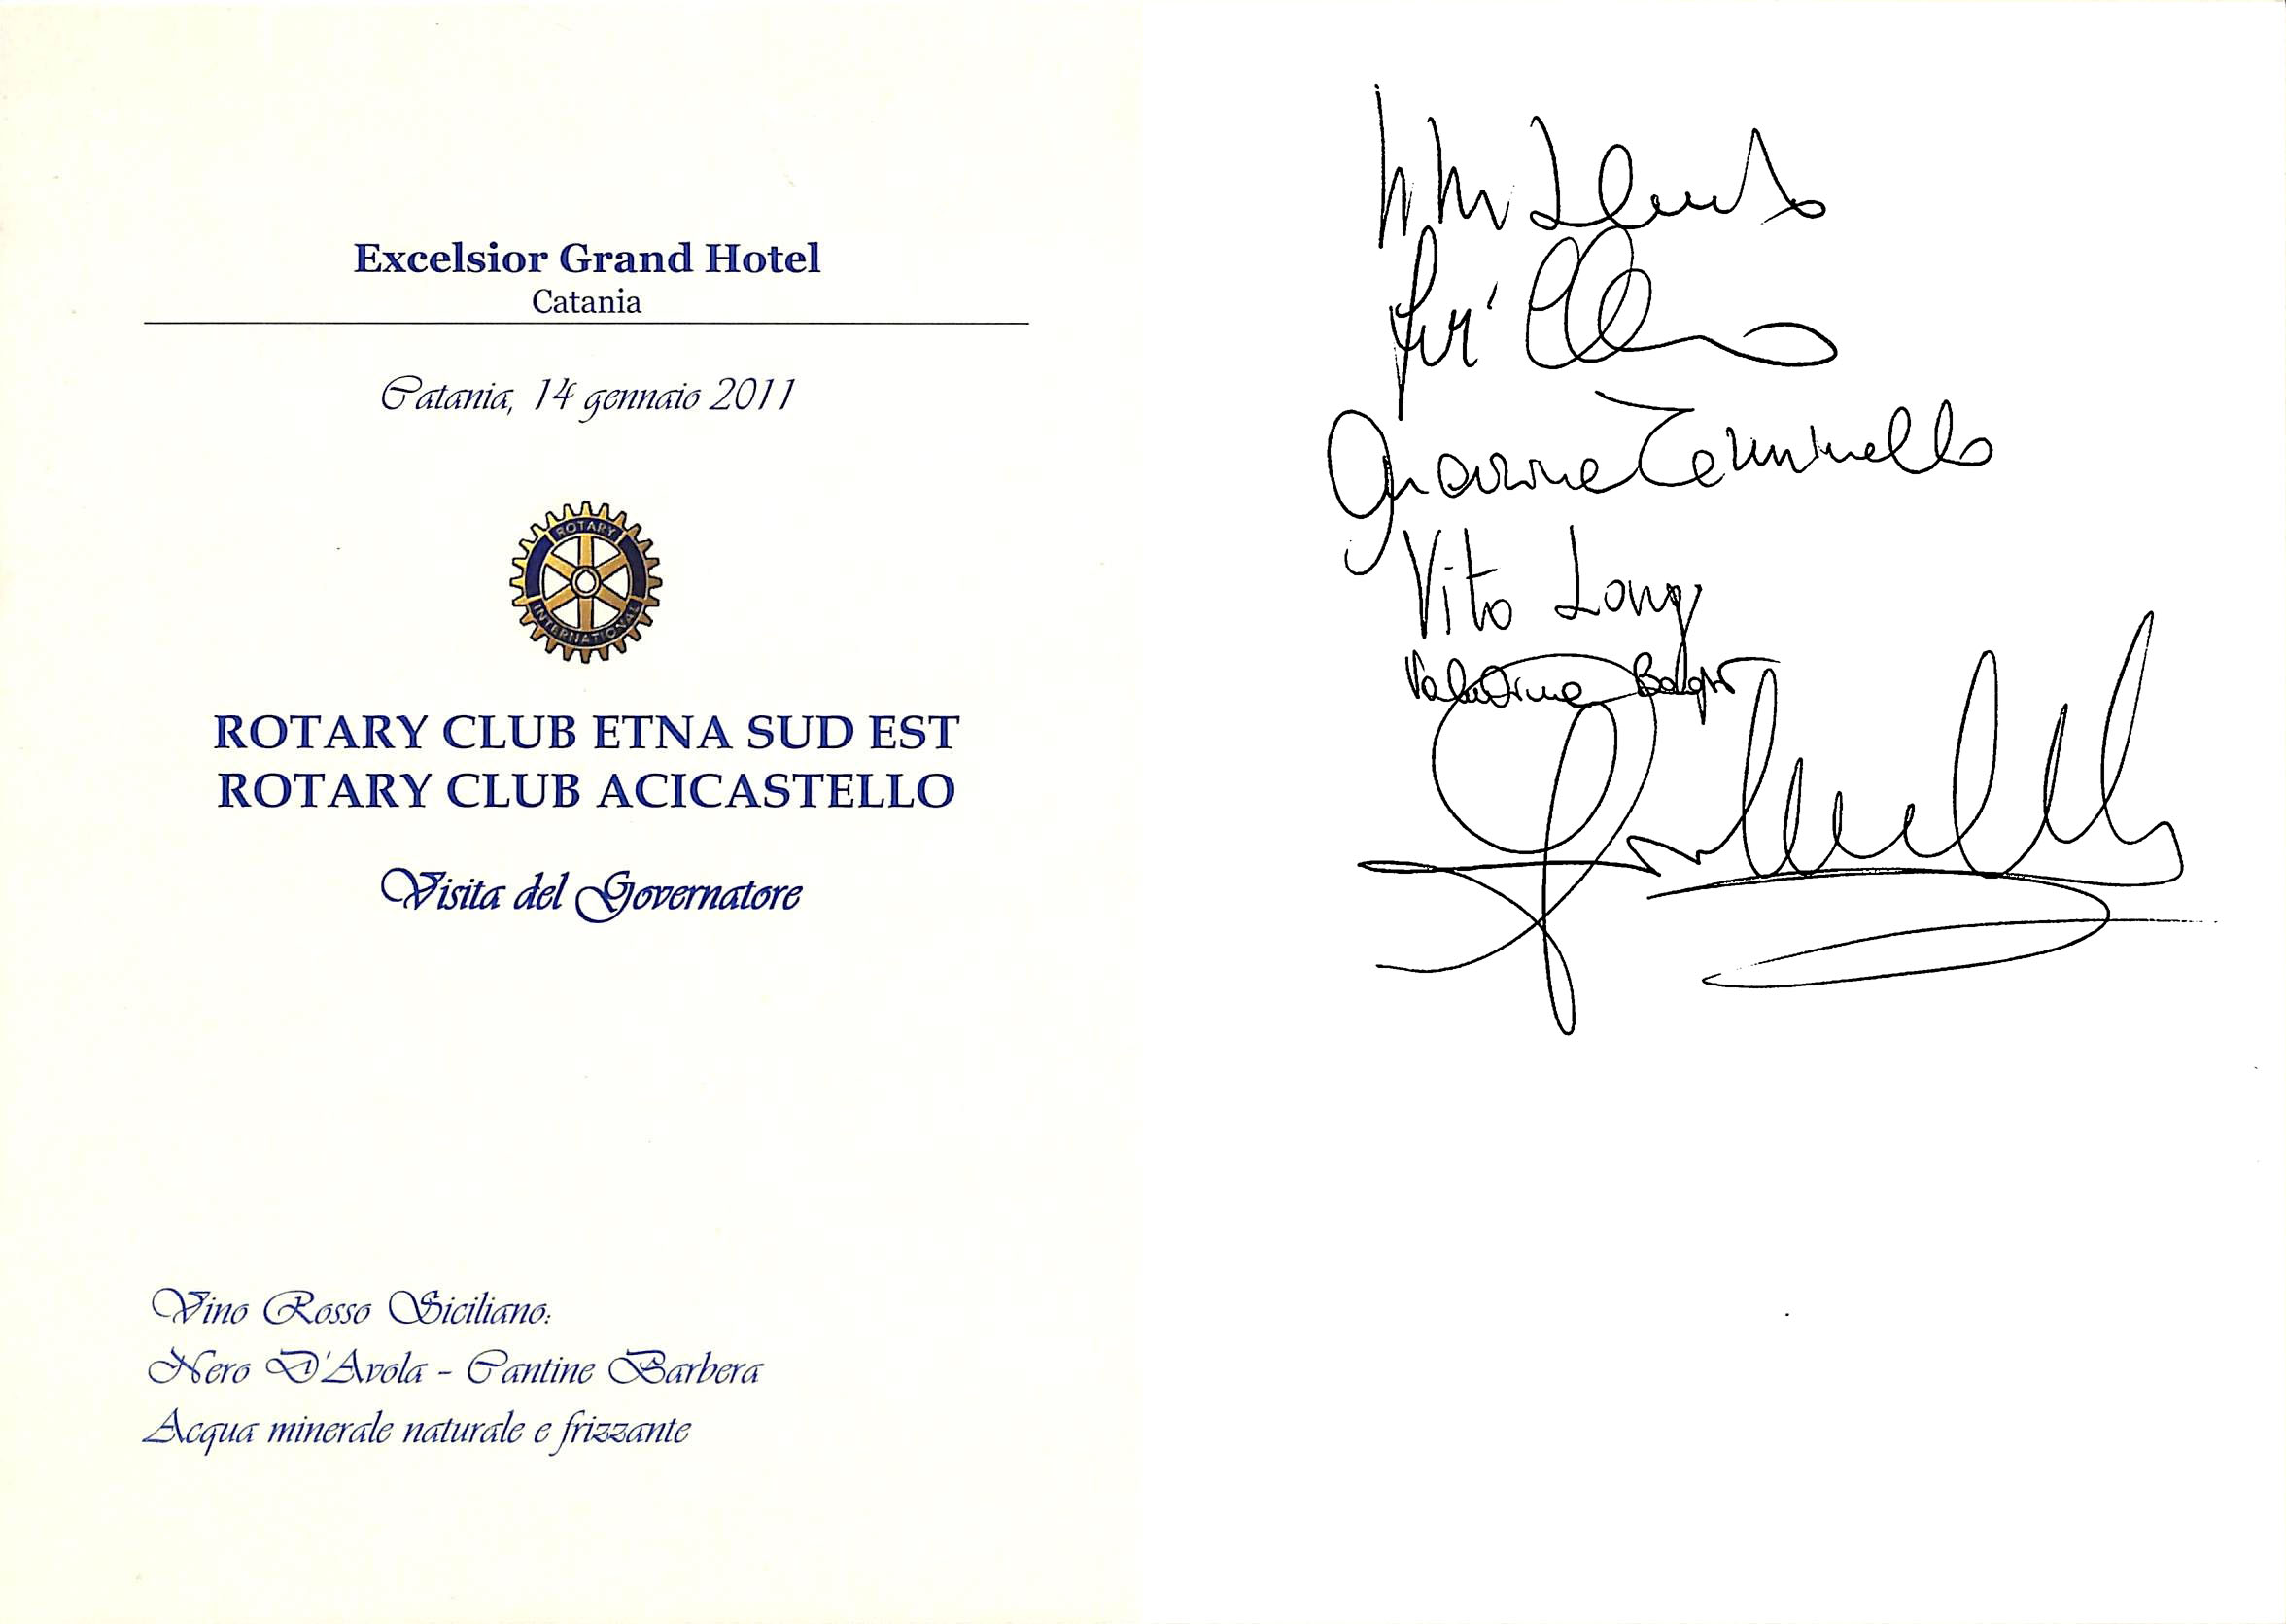 Excelsior Grand Hotel
Catania
Catania, 14 gennaio 2011
ROTARY
INTERNATIONAL
ROTARY CLUB ETNA SUD EST
ROTARY CLUB ACICASTELLO
Visita del Governatore
Vino Rosso Siciliano:
Nero D'Avola - Cantine Barbera
Acqua minerale naturale e frizzante
Vito Longo
Valentina